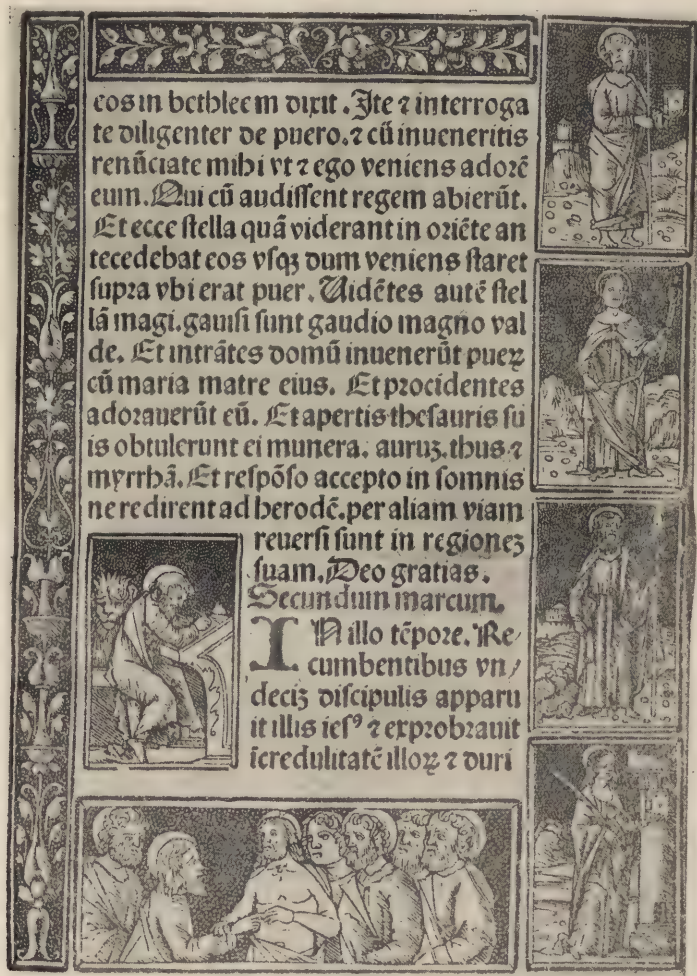 cos in bethleem dixit. Ite ⁊ interroga
te diligenter de puero. ⁊ cū inueneritis
renūciate mihi vt ⁊ ego veniens adorē
eum. Qui cū audissent regem abierūt.
Et ecce stella quā viderant in oriēte an
tecedebat eos vsqꝫ dum veniens staret
supra vbi erat puer. Uidētes autē stel
lā magi. gauisi sunt gaudio magno val
de. Et intrātes domū inuenerūt pueꝝ
cū maria matre eius. Et procidentes
adorauerūt eū. Et apertis thesauris su
is obtulerunt ei munera. auruꝫ. thus ⁊
myrrhā. Et respōso accepto in somnis
ne redirent ad herodē. per aliam viam
reuersi sunt in regioneꝫ
suam. Deo gratias.
Secundum marcum.
IN illo tēpore. Re/
cumbentibus vn/
deciꝫ discipulis apparu
it illis iesꝰ ⁊ exprobrauit
īcredulitatē illoꝝ ⁊ duri